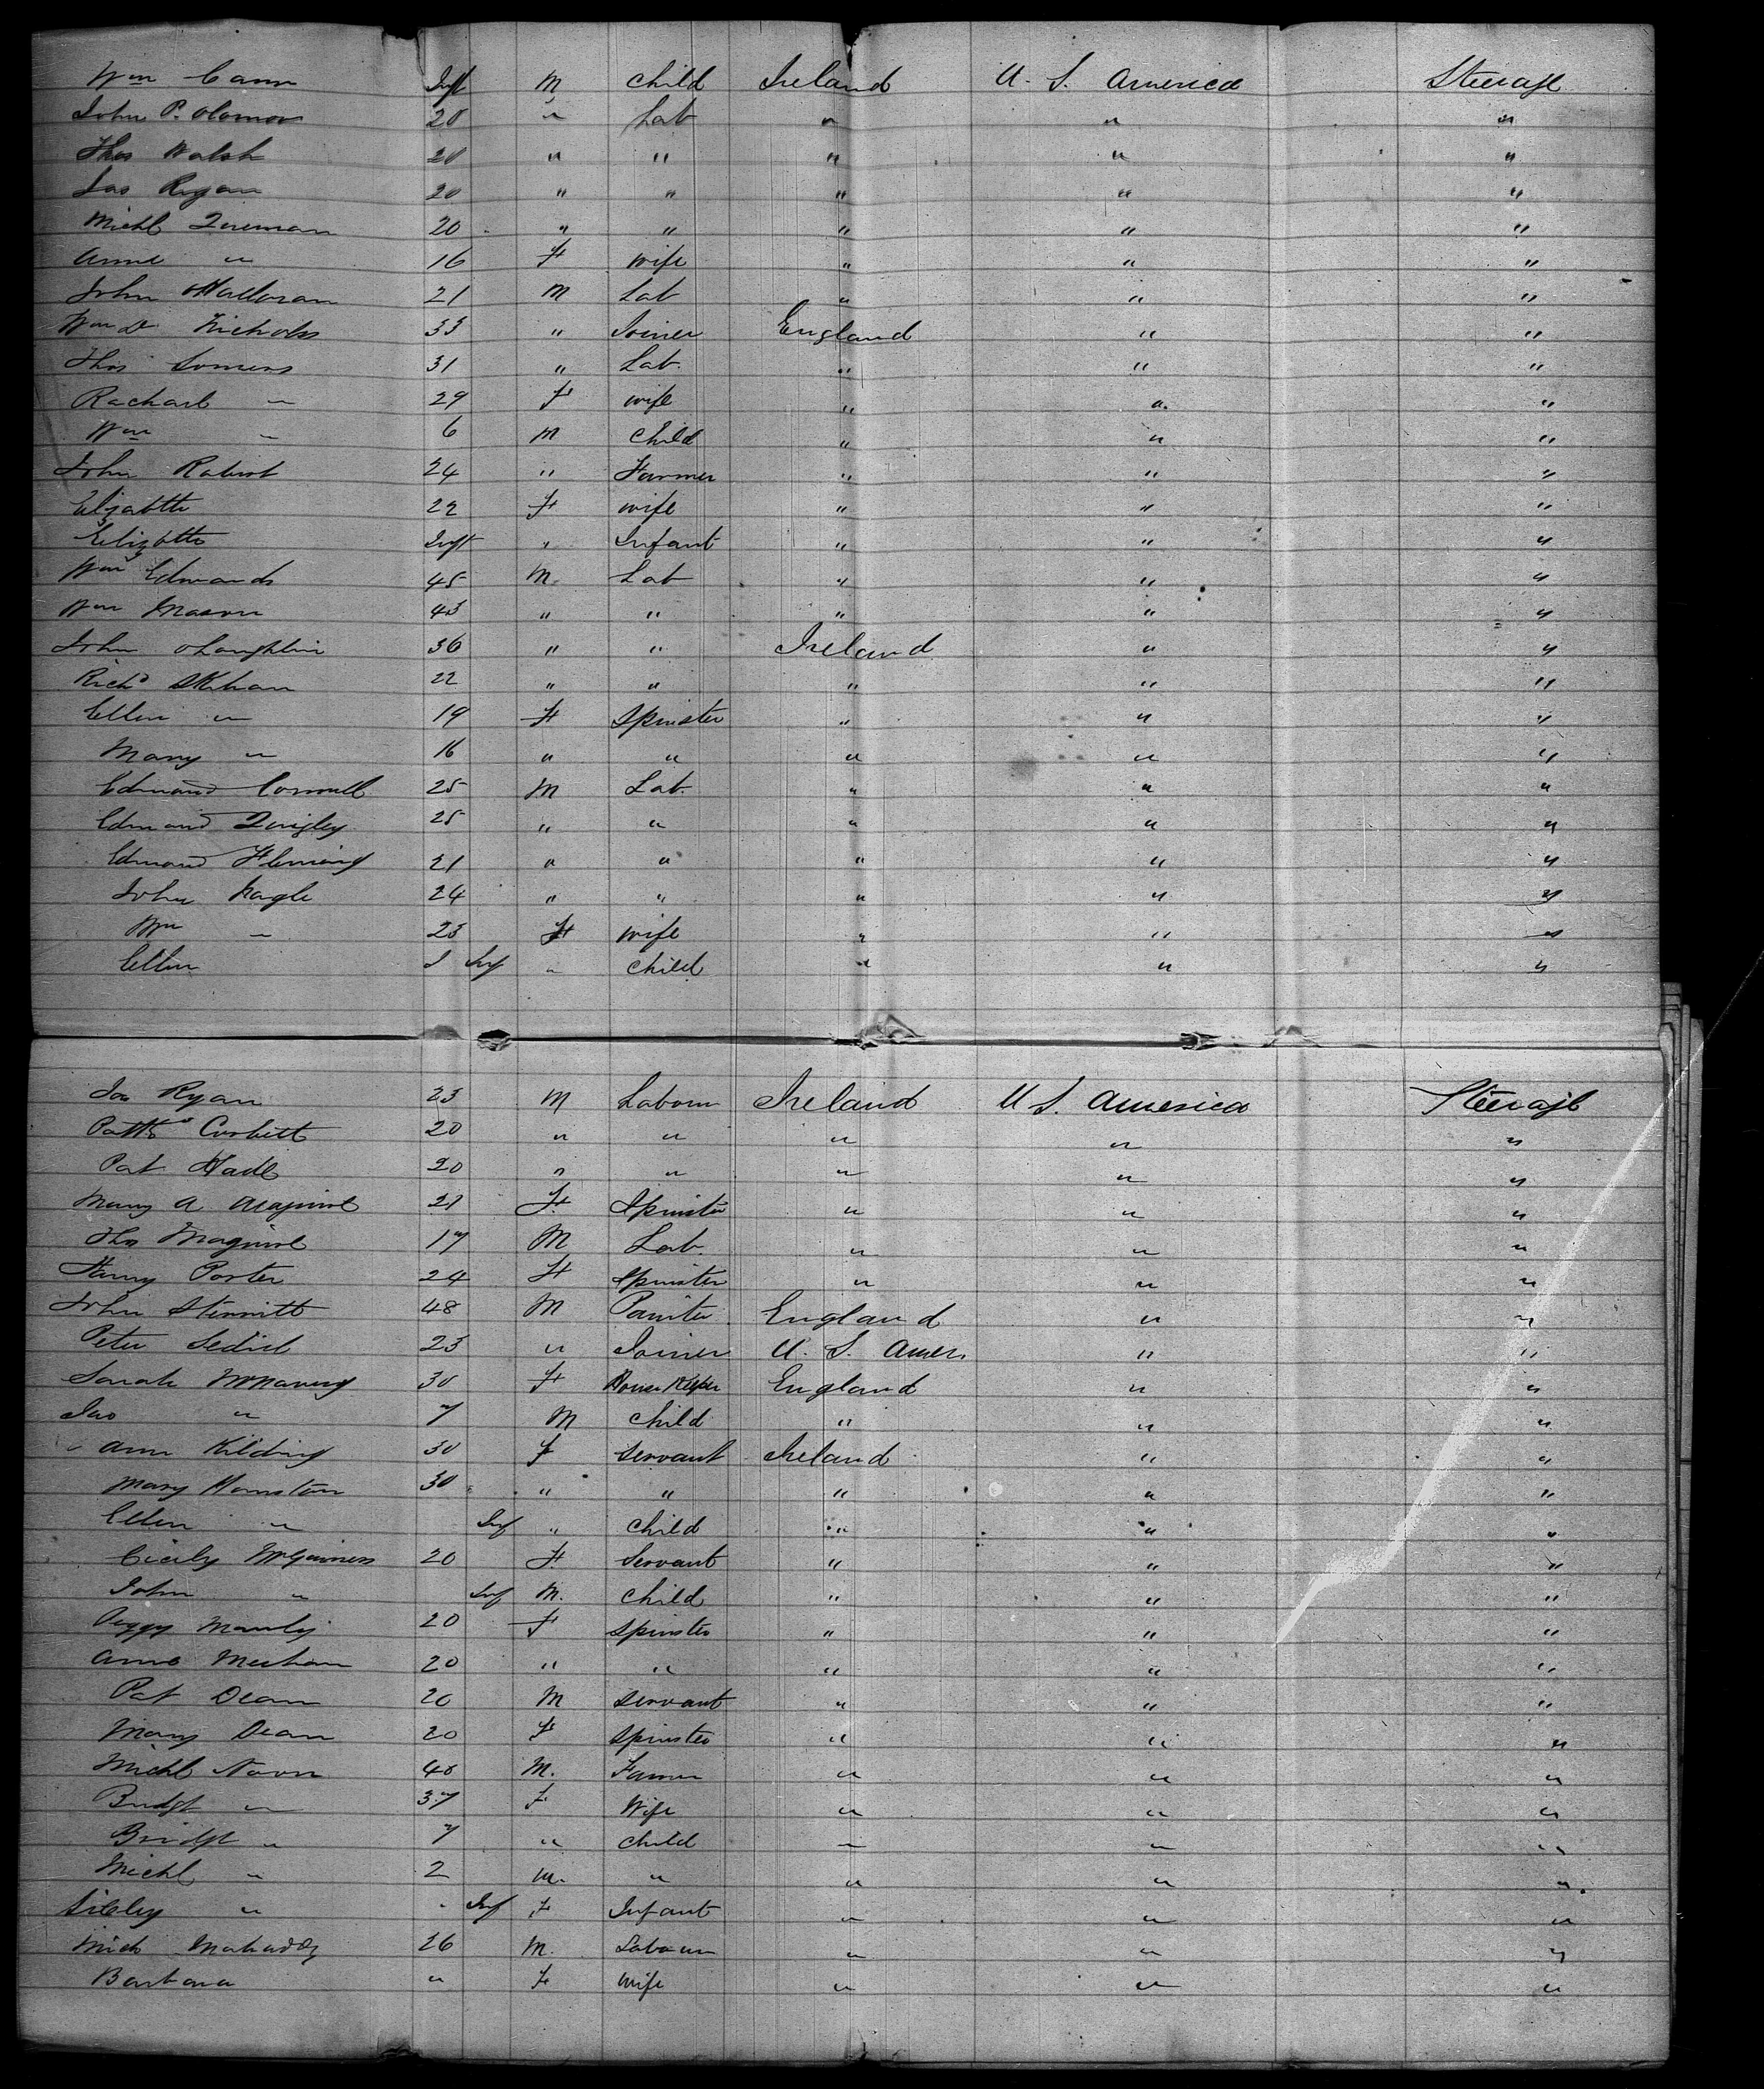 Wm Cann Inft M child Ireland U. S. America Steerage
John P. 20 " Lab " " "
Thos Walsh 20 " " " " "
Jas Ryan 20 " " " " "
Michl 20 " " " " "
Anne " 16 F wife " " "
John OHalloran 21 M Lab " " "
Wm Nicholas 33 " Joiner England " "
Thos Somers 31 " Lab. " " "
Rachael " 29 F wife " " "
Wm " 6 M Child " " "
John Robert 24 " Farmer " " "
Elizabth 22 F wife " " "
Elizabth Inft " Infant " " "
Wm Edmands 45 M Lab " " "
Wm Mason 43 " " " " "
John oLaughlin 36 " " Ireland " "
Richd Skehan 22 " " " " "
Ellen " 19 F Spinster " " "
Mary " 16 " " " " "
Edmund Connell 25 M Lab. " " "
Edmund Quigley 25 " " " " "
Edmund Fleming 21 " " " " "
John Nagle 24 " " " " "
Wm " 23 F wife " " "
Ellen Inf " child " " "
Jas Ryan 23 M Labour Ireland U S. America Steerage
Pattk Corbett 20 " " " " "
Pat Hade 20 " " " " "
Mary A Maguire 21 F. Spinster " " "
Thos Maguire 17 M Lab. " " "
Fanny Porter 24 F Spinster " " "
John Sterritt 48 M Painter England " "
Peter 23 " Joiner U. S. Amer. " "
Sarah 30 F House Keeper England " "
Jas " 7 M child " " "
Ann Kilding 30 F Servant Ireland " "
Mary Houston 30 " " " " "
Ellen " Inf " child " " "
Cicily McGuiness 20 F Servant " " "
John " Inf M. child " " "
Peggy 20 F Spinster " " "
Anne Meehan 20 " " " " "
Pat Dean 20 M Servant " " "
Mary Dean 20 F Spinster " " "
Michl Noon 40 M. Farmer " " "
Bridgt " 37 F Wife " " "
Bridgt " 7 " child " " "
Michl " 2 M. " " " "
Sibley " Inf F Infant " " "
Mich 26 M. Labour " " "
Barbara " F wife " " "